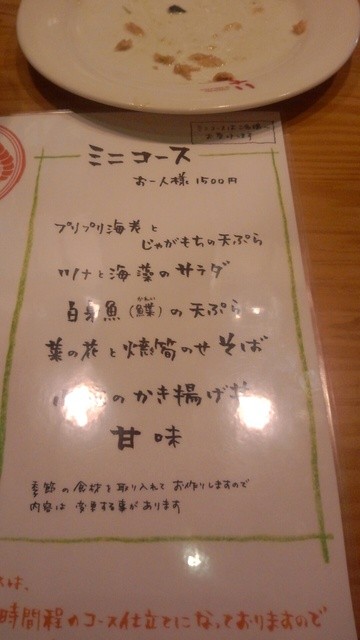 ミニコース
お一人様 1500円
プリプリ海老と
じゃがもちの天ぷら
ツナと海藻のサラダ
白身魚(鰈)の天ぷら
かれい
菜の花と焼筍のせそば
のかき揚げ丼
甘味
季節の食材を取り入れてお作りしますので
内容は変更する事があります
は、
時間程のコース仕立てになっておりますので